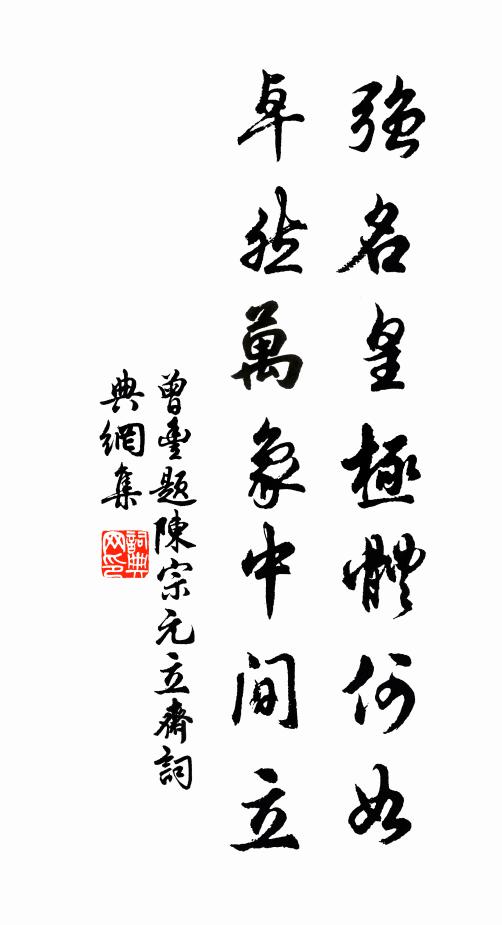 強名皇極體何如
卓然萬象中間立
曾豐題陳宗元立齋詞
典網集
詞典网印